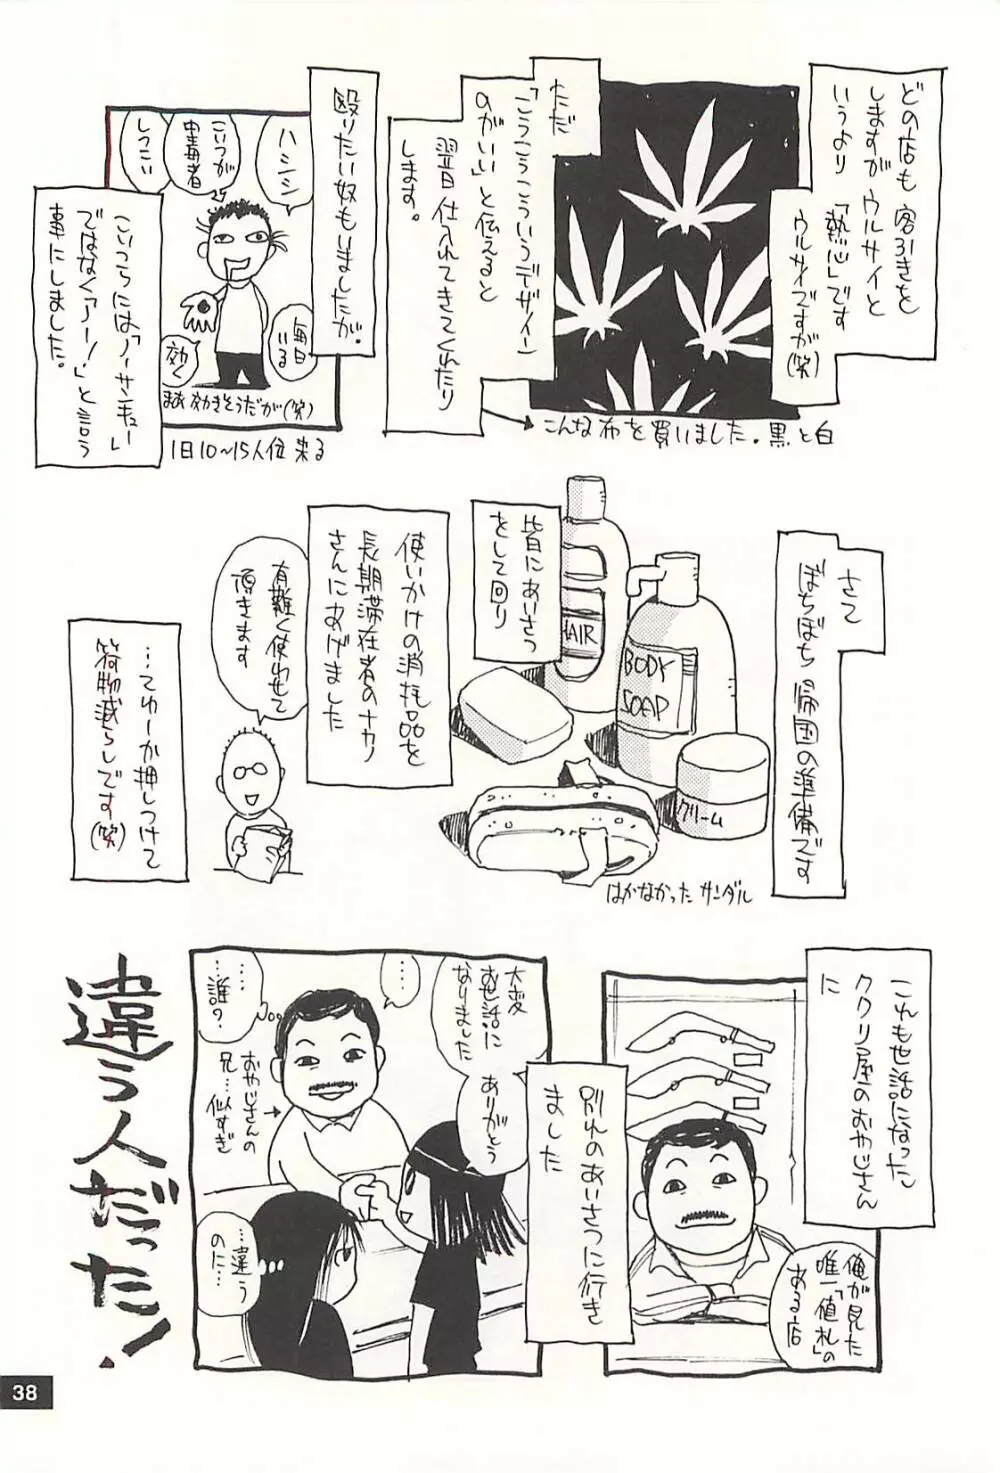 どの店も客引きを
しますがウルサイと
いうより「熱心」です
ウルサイですが(笑)
ただ
「こうこうこういうデザイン
のがいい」と伝えると
翌日仕入れてきてくれたり
します。
こんな布を買いました。黒と白
殴りたい奴もいましたが、
ハシシ
こいつが
中毒者
しつこい
毎日
いる
効く
まあ効きそうだが(笑)
1日10〜15人位来る
こいつらには「ノーサンキュー」
ではなく「アー!」と言う
事にしました。
さて
ぼちぼち帰国の準備です
皆にあいさつ
をして回り
HAIR
BODY
SOAP
クリーム
はかなかったサンダル
使いかけの消耗品を
長期滞在者のナカノ
さんにあげました
有難く使わせて
頂きます
…てゆーか押しつけて
荷物減らしです(笑)
これも世話になった
ククリ屋のおやじさん
に
俺が見た
唯一「値札」の
ある店
別れのあいさつに行き
ました
大変
お世話に
なりました
ありがとう
…
…
…誰?
おやじさんの
兄…似すぎ
…違う
のに…
違う人だった!
38